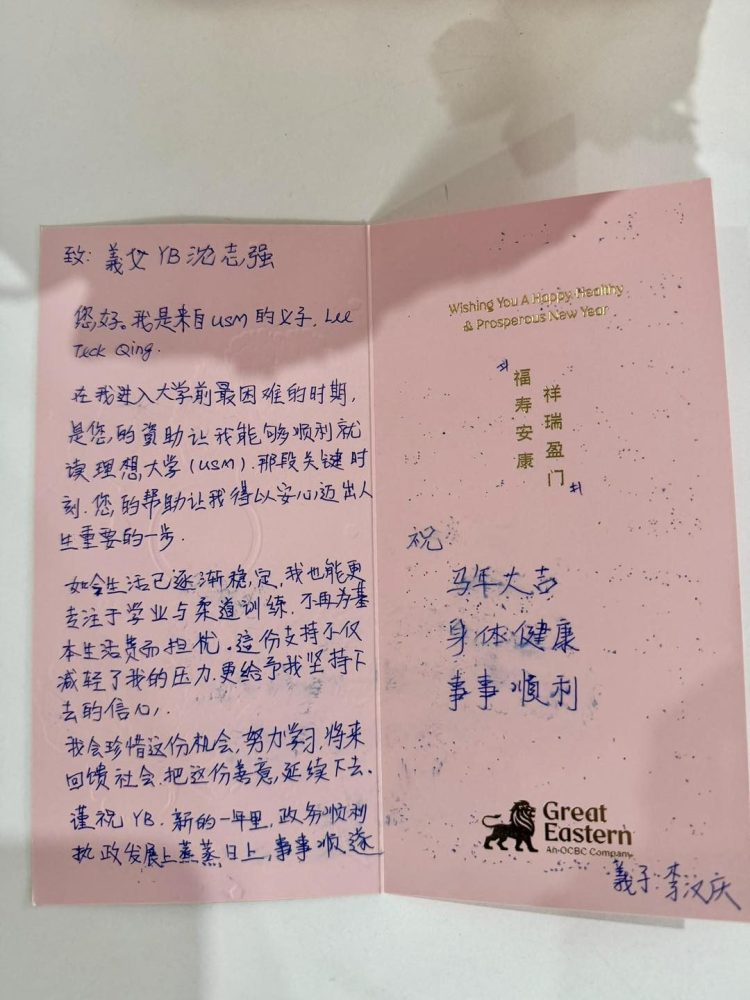 致: 義父 YB 沈志强
您好。我是来自USM的义子, Lee
Teck Qing.
在我进入大学前最困难的时期,
是您的資助让我能够顺利就
读理想大学(USM). 那段关键时
刻. 您的帮助让我得以安心迈出人
生重要的一步.
如今生活已逐渐稳定, 我也能更
专注于学业与柔道训练. 不再为基
本生活费而担忧. 這份支持不仅
减轻了我的压力. 更给予我坚持下
去的信心,
我会珍惜这份机会, 努力学习, 将来
回馈社会. 把这份善意, 延续下去.
谨祝 YB. 新的一年里, 政务顺利
执政发展上蒸蒸日上, 事事顺遂
Wishing You A Happy, Healthy
& Prosperous New Year
祥瑞盈门
福寿安康
祝:
马年大吉
身体健康
事事顺利
Great
Eastern
An OCBC Company
義子: 李汉庆